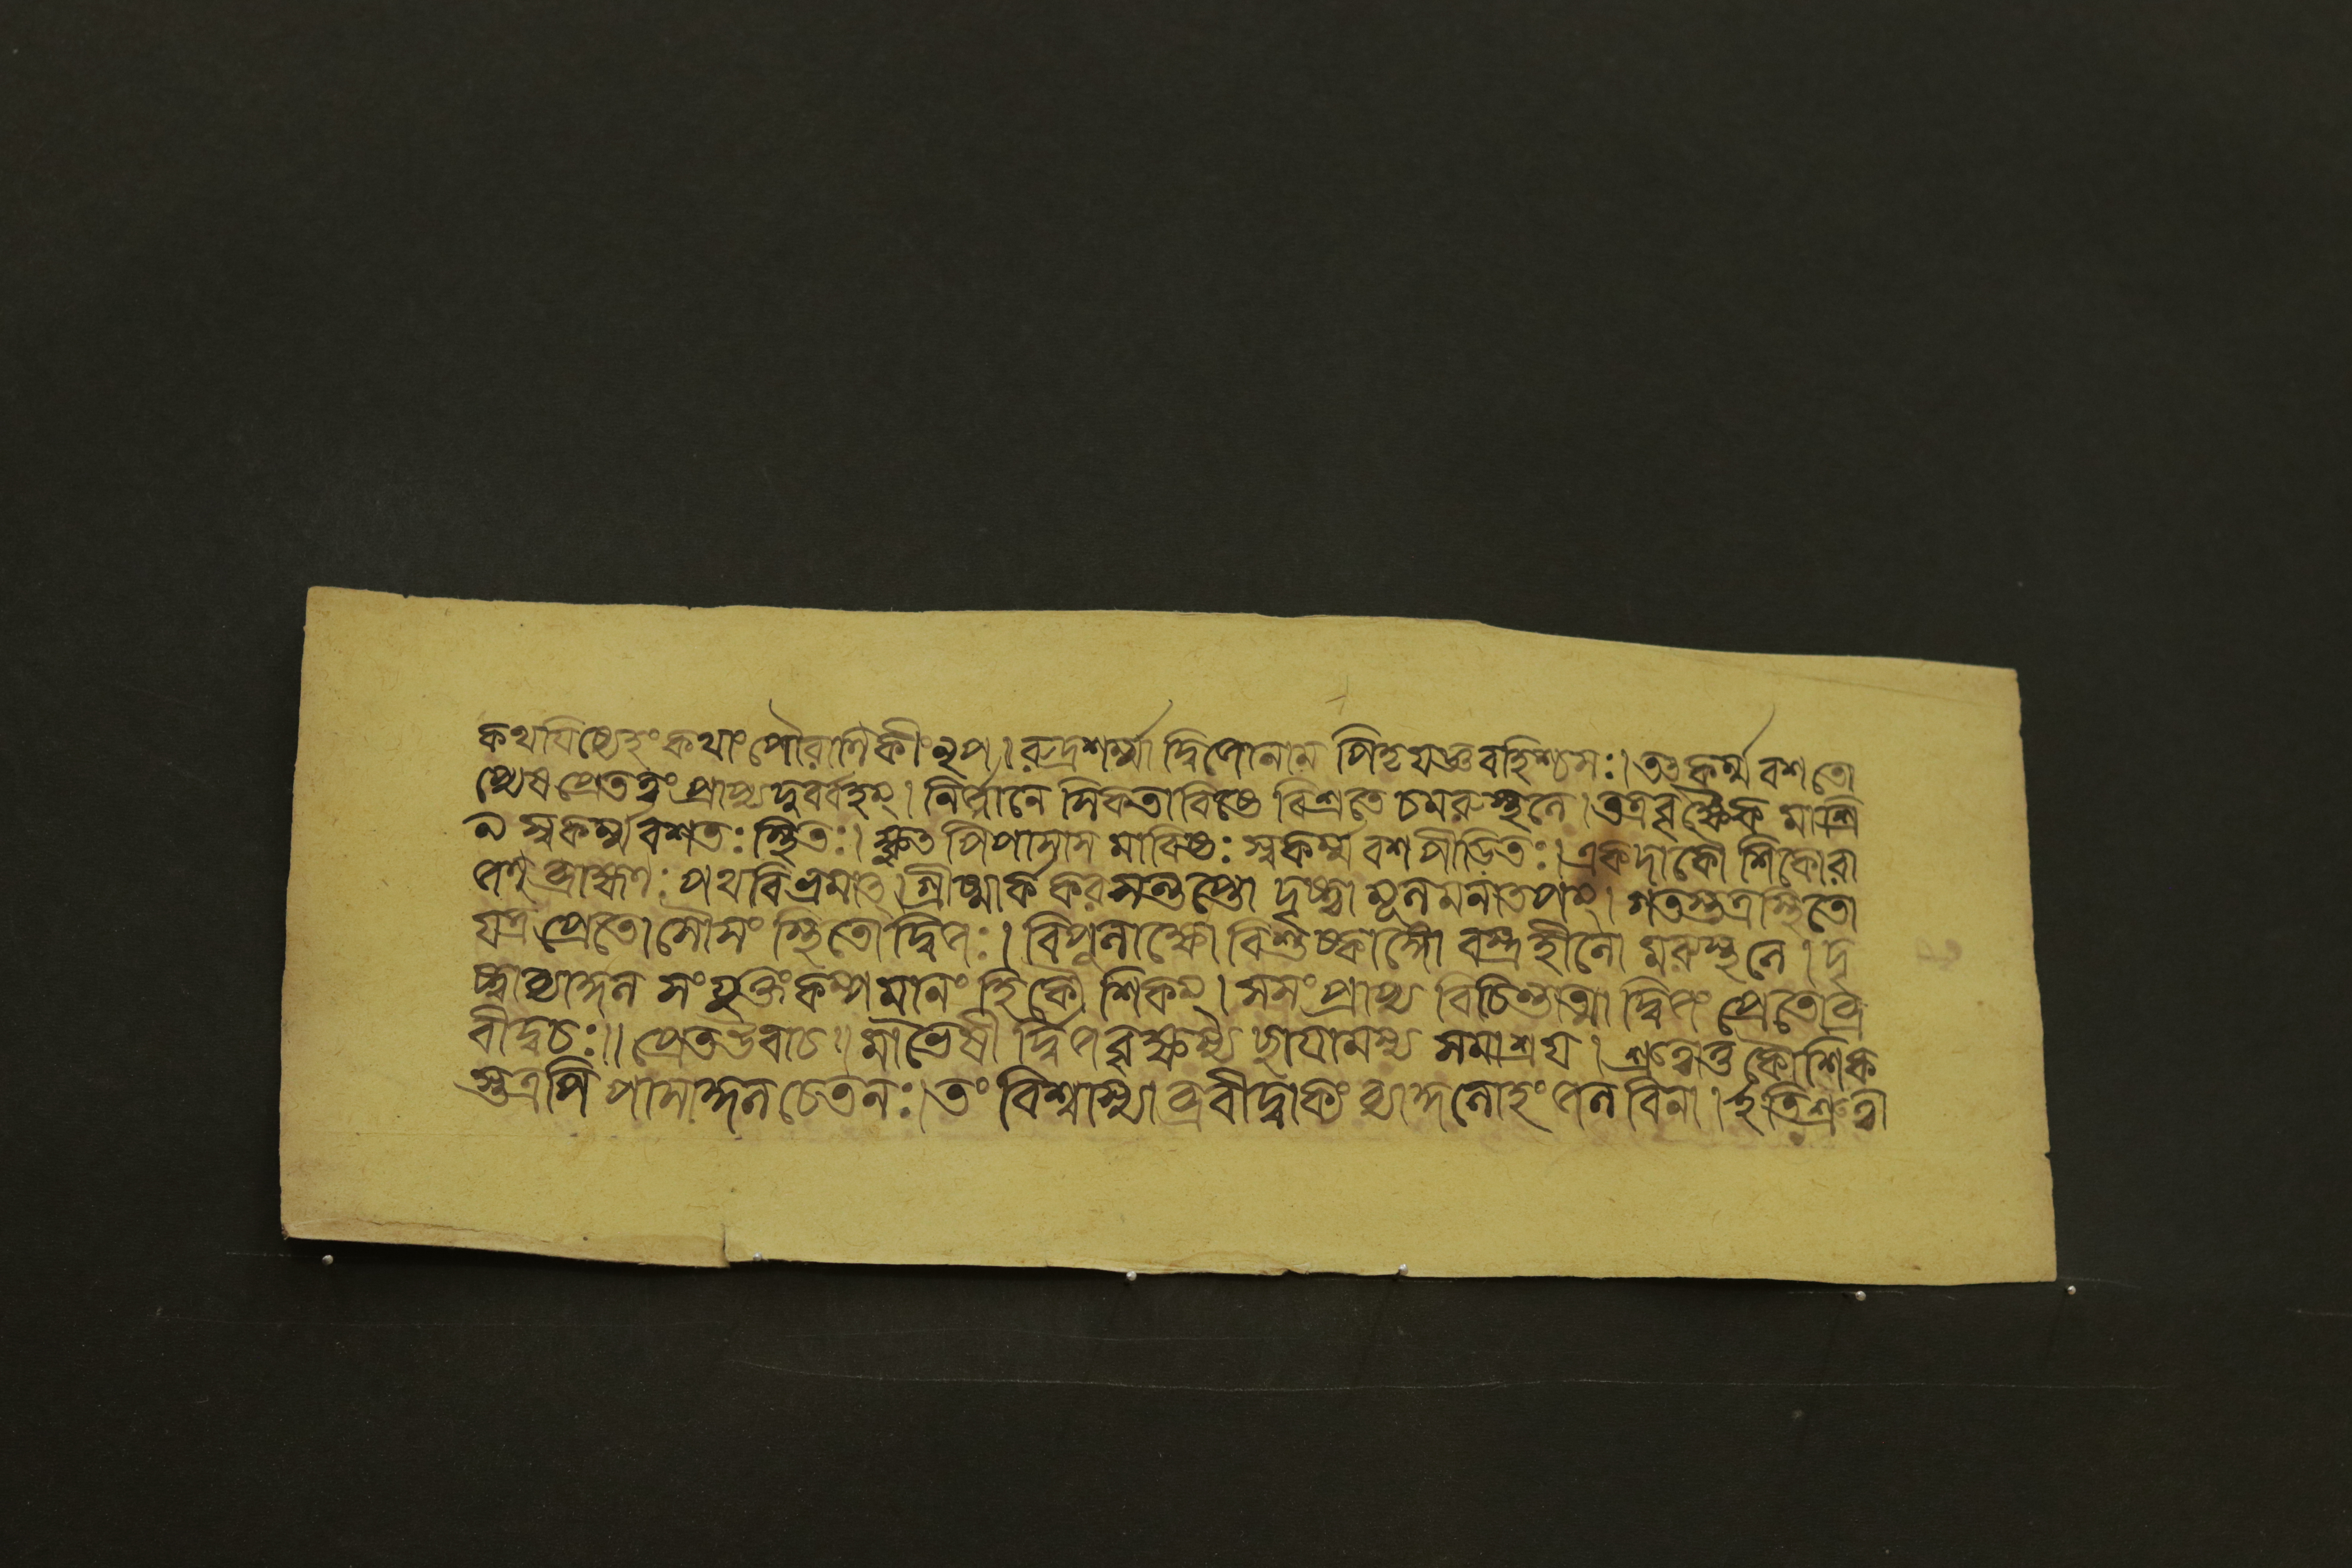 কথযিষ্যেহং কথাং পৌরাণিকীং নৃপ। রুদ্রশর্ম্মা দ্বিজোনাম পিতৃযজ্ঞবহিশ্চসঃ। তৎকর্ম্মবশতো
প্যেষ প্রেতত্বং প্রাপ্য দুর্ব্বহম্। নির্জ্জনে সিকতাবিষ্টে বিশ্রতে চমরুস্থলে। তত্রবৃক্ষৈক মাশ্রি
ত্য স্বকর্ম্মবশতঃ স্থিতঃ। ক্ষুত পিপাসাস মাবিষ্টঃ স্বকর্ম্ম বশপীডিতঃ। একদা কৌশিকোরা
জন্ ব্রাহ্মণঃ পথবিভ্রমাৎ। গ্রীষ্মার্ককরসন্তপ্তো দৃষ্ট্বা মূলমনাতপম্। গতস্তত্রস্থিতো
যত্র প্রেতোসৌসং স্থিতো দ্বিজঃ। বিপুলাক্ষো বিশুষ্কাঙ্গৌ বস্ত্রহীনো মরুস্থলে। দৃ
ষ্ট্বাব্যাজন সংযুক্তং কম্পমানং হি কৌশিকম্। সসং প্রাপ্য বিচিন্তাত্মা দ্বিজং প্রেতোব্র
বীদ্বচঃ॥ প্রেতউবাচ॥ মাভৈষী র্দ্বিজবৃক্ষস্য ছাযামস্য সমাশ্রয। শ্রুত্বাতু কৌশিক
স্তত্রপি পাসাজলচেতনঃ। তং বিশ্বাস্যা ব্রবীদ্বাক্যং ব্যাজলোহং জলবিনা। ইতিশ্রুত্বা